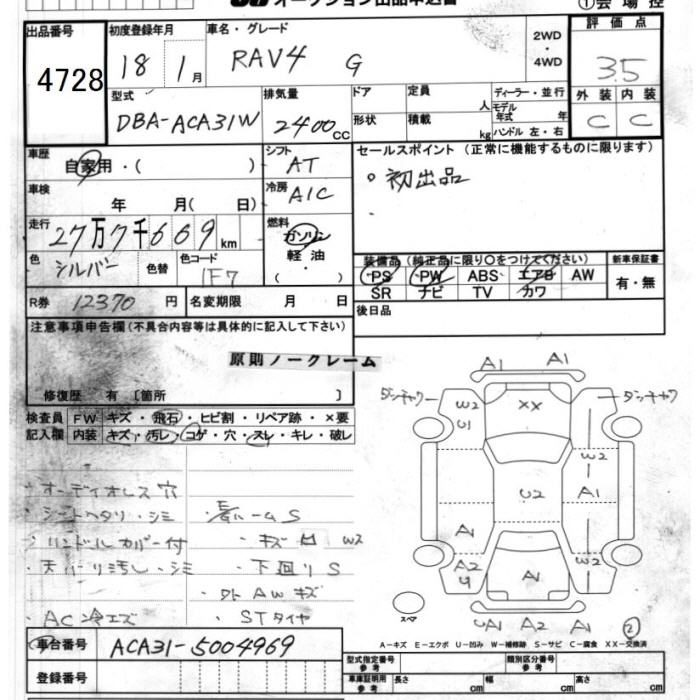 オークション出品申込書 ①会場控
出品番号 4728
初度登録年月 18 1月
車名・グレード RAV4 G
2WD・4WD
評価点 3.5
型式 DBA-ACA31W
排気量 2400cc
ドア 形状
定員 人
積載 kg
ディーラー・並行
モデル年式 年
ハンドル 左・右
外装 C 内装 C
車歴 自家用・( )
シフト AT
車検 年 月( 日)
冷房 A/C
走行 27万7千669km
燃料 ガソリン 軽油・( )
色 シルバー 色替 色コード 1F7
R券 12370円 名変期限 月 日
セールスポイント(正常に機能するものに限ります)
。初出品
装備品(純正品に限り○をつけてください) 新車保証書
PS PW ABS エアB AW 有・無
SR ナビ TV カワ
後日品
注意事項申告欄(不具合内容等は具体的に記入して下さい)
原則ノークレーム
修復歴 有〔箇所 〕
検査員 FW キズ・飛石・ヒビ割・リペア跡・×要
記入欄 内装 キズ・汚レ・コゲ・穴・スレ・キレ・破レ
・オーディオレス穴
・シートヘタリ・シミ
・ハンドルカバー付
・天バリ汚レ・シミ
・AC冷エズ
・ルームS
・キズ凹 WS
・下回りS
・外AWキズ
・STタイヤ
A1 A1
W2 U1 XX
W2
U2 A1
A1
A2 A1 W2
UA1 A2 A1
スペア
②
A-キズ E-エクボ U-凹み W-補修跡 S-サビ C-腐食 XX-交換済
車台番号 ACA31-5004969
登録番号
型式指定番号 参考 類別区分番号 参考
車庫証明用 参考 長さ cm 幅 cm 高さ cm